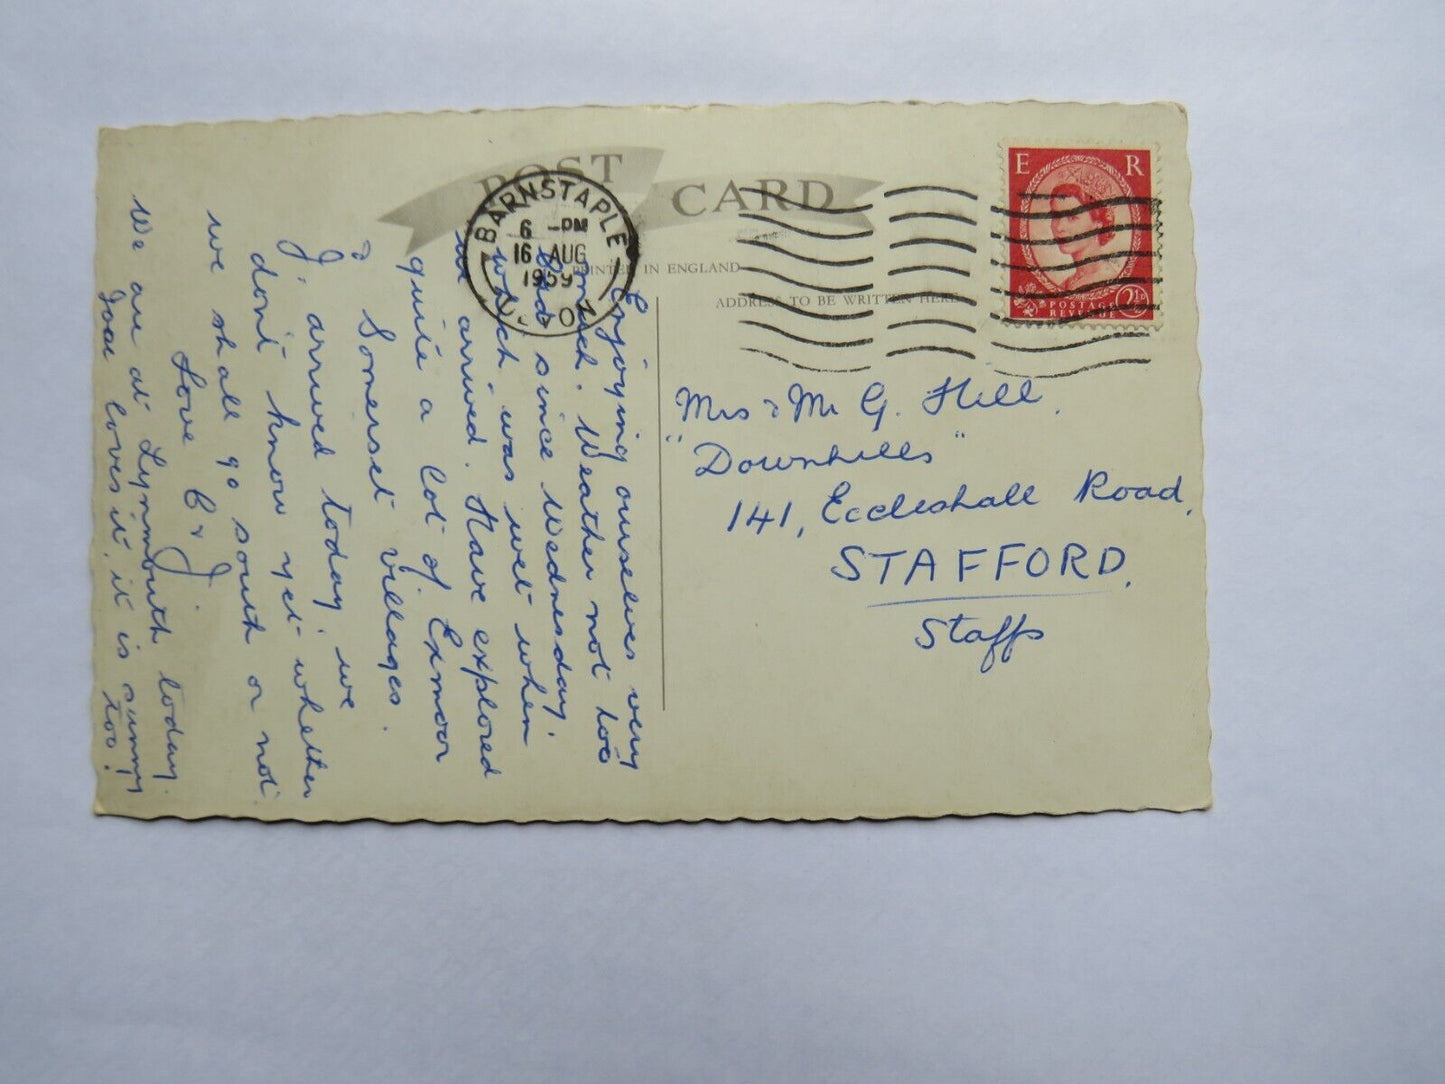 POST CARD
BARNSTAPLE
6 - PM
16 AUG
1959
DEVON
E R
POSTAGE
REVENUE
2½D
PRINTED IN ENGLAND
ADDRESS TO BE WRITTEN HERE
Mrs & Mr G. Hill.
"Downhills"
141, Eccleshall Road,
STAFFORD.
Staffs
Enjoying ourselves very
much. Weather not too
bad since Wednesday.
which was wet when
we arrived. Have explored
quite a lot of Exmoor
& Somerset villages.
J. arrived today. we
don't know yet whether
we shall go south or not
Love C & J.
We are at Lynmouth today.
loves it, it is sunny
too!